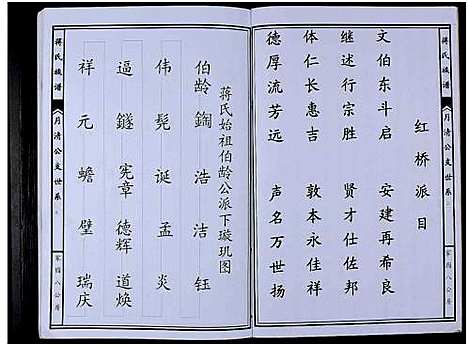 红桥派目
文伯东斗启 安建再希良
继述行宗胜 贤才仕佐邦
体仁长惠吉 敦本永佳祥
德厚流芳远 声名万世扬
蒋氏族谱
月清公支世系
蒋氏始祖伯龄公派下璇玑图
伯龄 鋾 浩 洁 钰
伟 髡 诞 孟 炎
逼 鐩 宪章 德辉 道焕
祥 元 蟾 璧 瑞庆
蒋氏族谱
月清公支世系